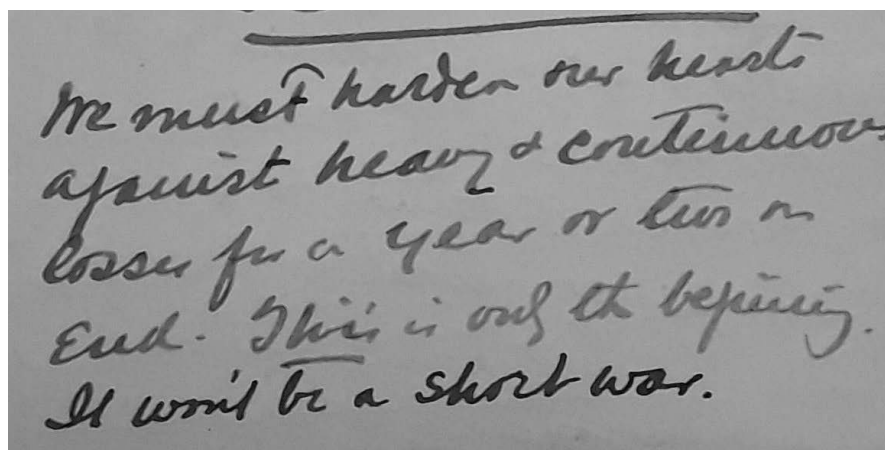 We must harden our hearts
against heavy & continuous
losses for a year or two on
End. This is only the beginning.
It won't be a short war.